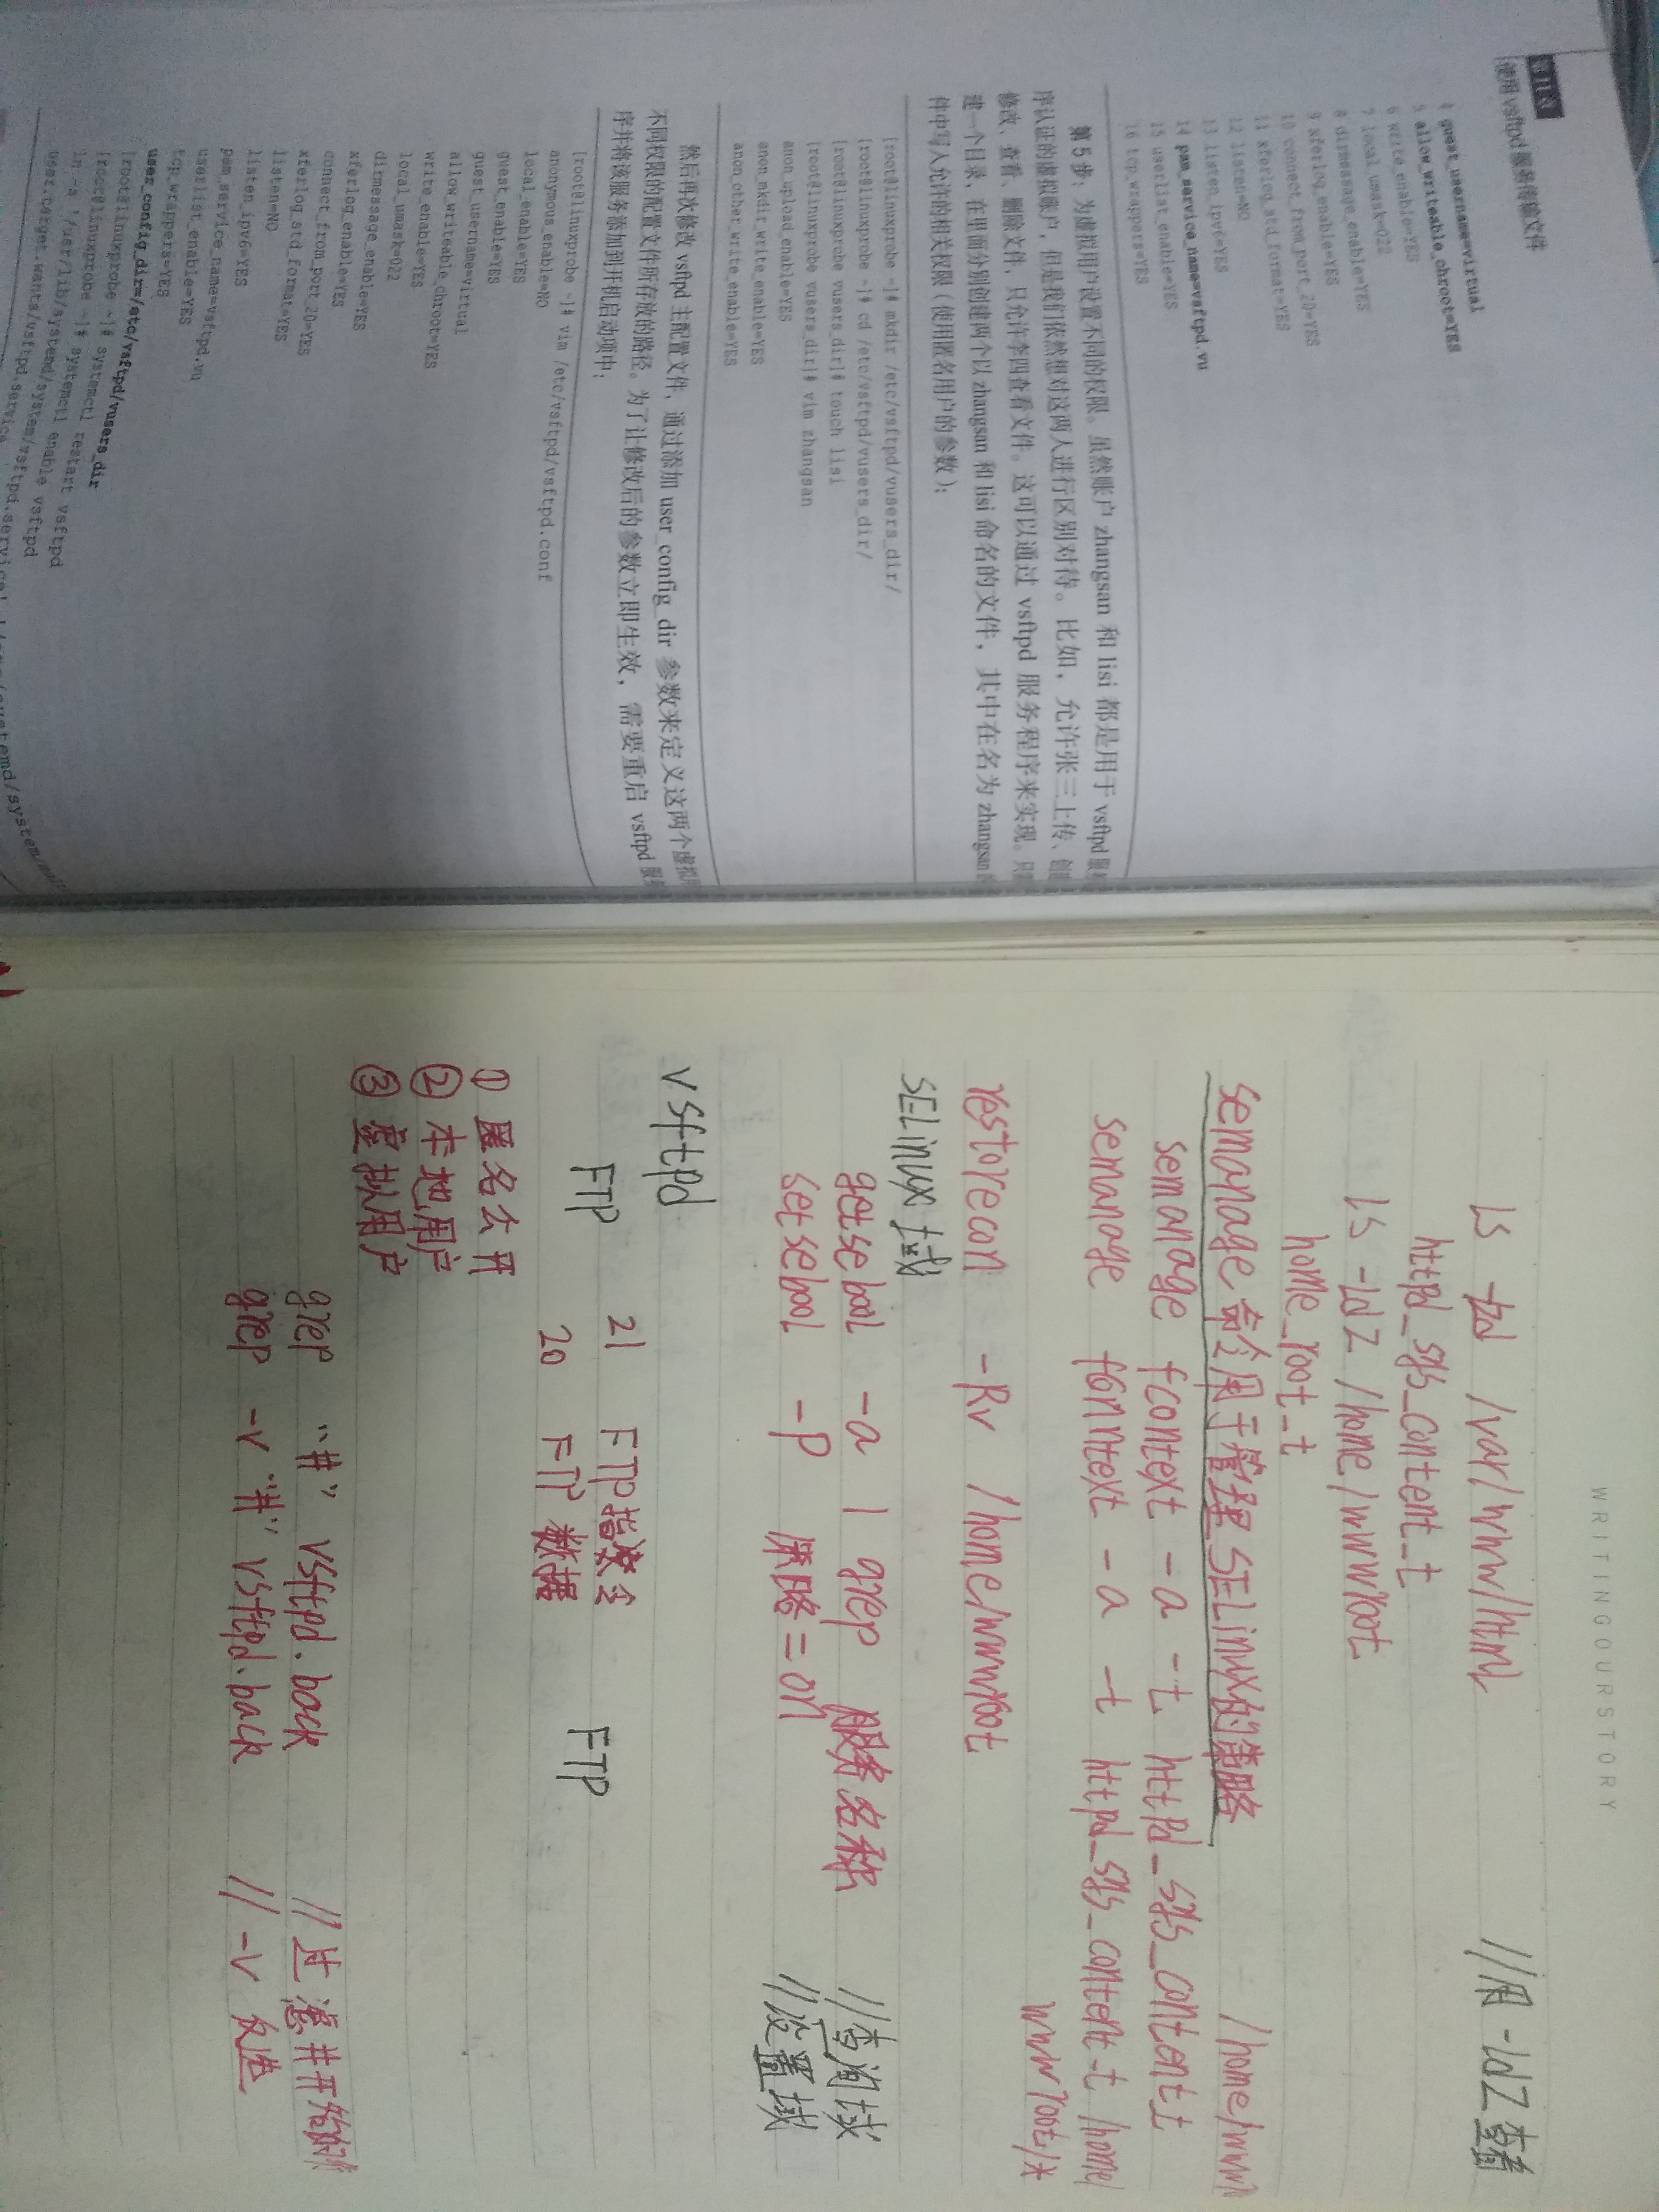 第11章
使用 vsftpd 服务传输文件
4 guest_username=virtual
5 allow_writeable_chroot=YES
6 write_enable=YES
7 local_umask=022
8 dirmessage_enable=YES
9 xferlog_enable=YES
10 connect_from_port_20=YES
11 xferlog_std_format=YES
12 listen=NO
13 listen_ipv6=YES
14 pam_service_name=vsftpd.vu
15 userlist_enable=YES
16 tcp_wrappers=YES
第 5 步：为虚拟用户设置不同的权限。虽然账户 zhangsan 和 lisi 都是用于 vsftpd 服务
序认证的虚拟账户，但是我们依然想对这两人进行区别对待。比如，允许张三上传、创建、
修改、查看、删除文件，只允许李四查看文件。这可以通过 vsftpd 服务程序来实现。只
建一个目录，在里面分别创建两个以 zhangsan 和 lisi 命名的文件，其中在名为 zhangsan
件中写入允许的相关权限（使用匿名用户的参数）：
[root@linuxprobe ~]# mkdir /etc/vsftpd/vusers_dir/
[root@linuxprobe ~]# cd /etc/vsftpd/vusers_dir/
[root@linuxprobe vusers_dir]# touch lisi
[root@linuxprobe vusers_dir]# vim zhangsan
anon_upload_enable=YES
anon_mkdir_write_enable=YES
anon_other_write_enable=YES
然后再次修改 vsftpd 主配置文件，通过添加 user_config_dir 参数来定义这两个虚拟用
不同权限的配置文件所存放的路径。为了让修改后的参数立即生效，需要重启 vsftpd 服务
序并将该服务添加到开机启动项中：
[root@linuxprobe ~]# vim /etc/vsftpd/vsftpd.conf
anonymous_enable=NO
local_enable=YES
guest_enable=YES
guest_username=virtual
allow_writeable_chroot=YES
write_enable=YES
local_umask=022
dirmessage_enable=YES
xferlog_enable=YES
connect_from_port_20=YES
xferlog_std_format=YES
listen=NO
listen_ipv6=YES
pam_service_name=vsftpd.vu
userlist_enable=YES
tcp_wrappers=YES
user_config_dir=/etc/vsftpd/vusers_dir
[root@linuxprobe ~]# systemctl restart vsftpd
[root@linuxprobe ~]# systemctl enable vsftpd
ln -s '/usr/lib/systemd/system/vsftpd.service
user.target.wants/vsftpd.service
WRITINGOURSTORY
ls -Zd /var/www/html //用 -ldZ 查看
httpd_sys_content_t
ls -ldZ /home/wwwroot
home_root_t
semanage 命令用于管理 SELinux的策略
semanage fcontext -a -t httpd_sys_content_t /home/www
semanage fcontext -a -t httpd_sys_content_t /home/
wwwroot/*
restorecon -Rv /home/wwwroot
SELinux 域
getsebool -a | grep 服务名称 //查询域
setsebool -P 策略=on //设置域
vsftpd
21 FTP指令
FTP FTP
20 FTP 数据
① 匿名公开
② 本地用户
③ 虚拟用户
grep "#" vsftpd.back //过滤#开始的
grep -v "#" vsftpd.back // -v 反选